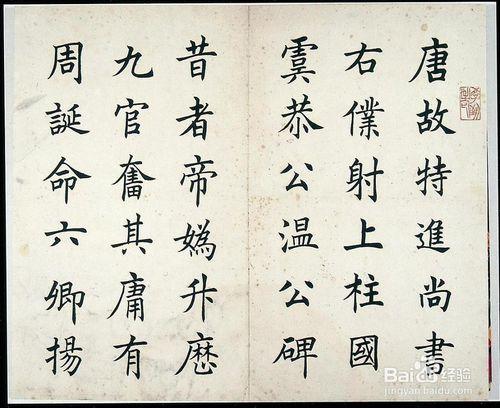 唐故特進尚書
右僕射上柱國
虞恭公温公碑
昔者帝媯升歷
九官奮其庸有
周誕命六卿揚
Baidu 经验
jingyan.baidu.com